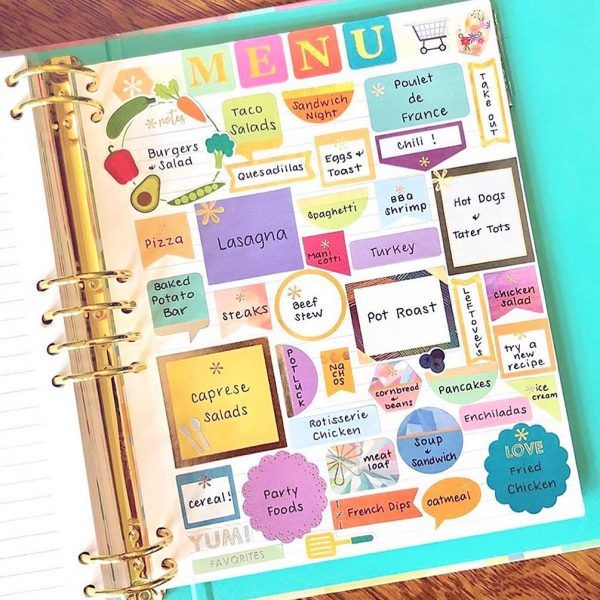 MENU
notes
Burgers
& Salad
Taco
Salads
Sandwich
Night
Poulet
de
France
Take out
Quesadillas
Eggs &
Toast
Chili !
Pizza
Lasagna
Spaghetti
BBQ
Shrimp
Hot Dogs
&
Tater Tots
Mani
cotti
Turkey
Baked
Potato
Bar
Steaks
Beef
Stew
Pot Roast
Leftovers
chicken
salad
try a
new
recipe
caprese
salads
Potluck
Na
ch
os
cornbread
& beans
Pancakes
ice
cream
Rotisserie
Chicken
Enchiladas
meat
loaf
Soup
&
Sandwich
LOVE
Fried
Chicken
cereal!
Party
Foods
French Dips
oatmeal
YUM!
FAVORITES